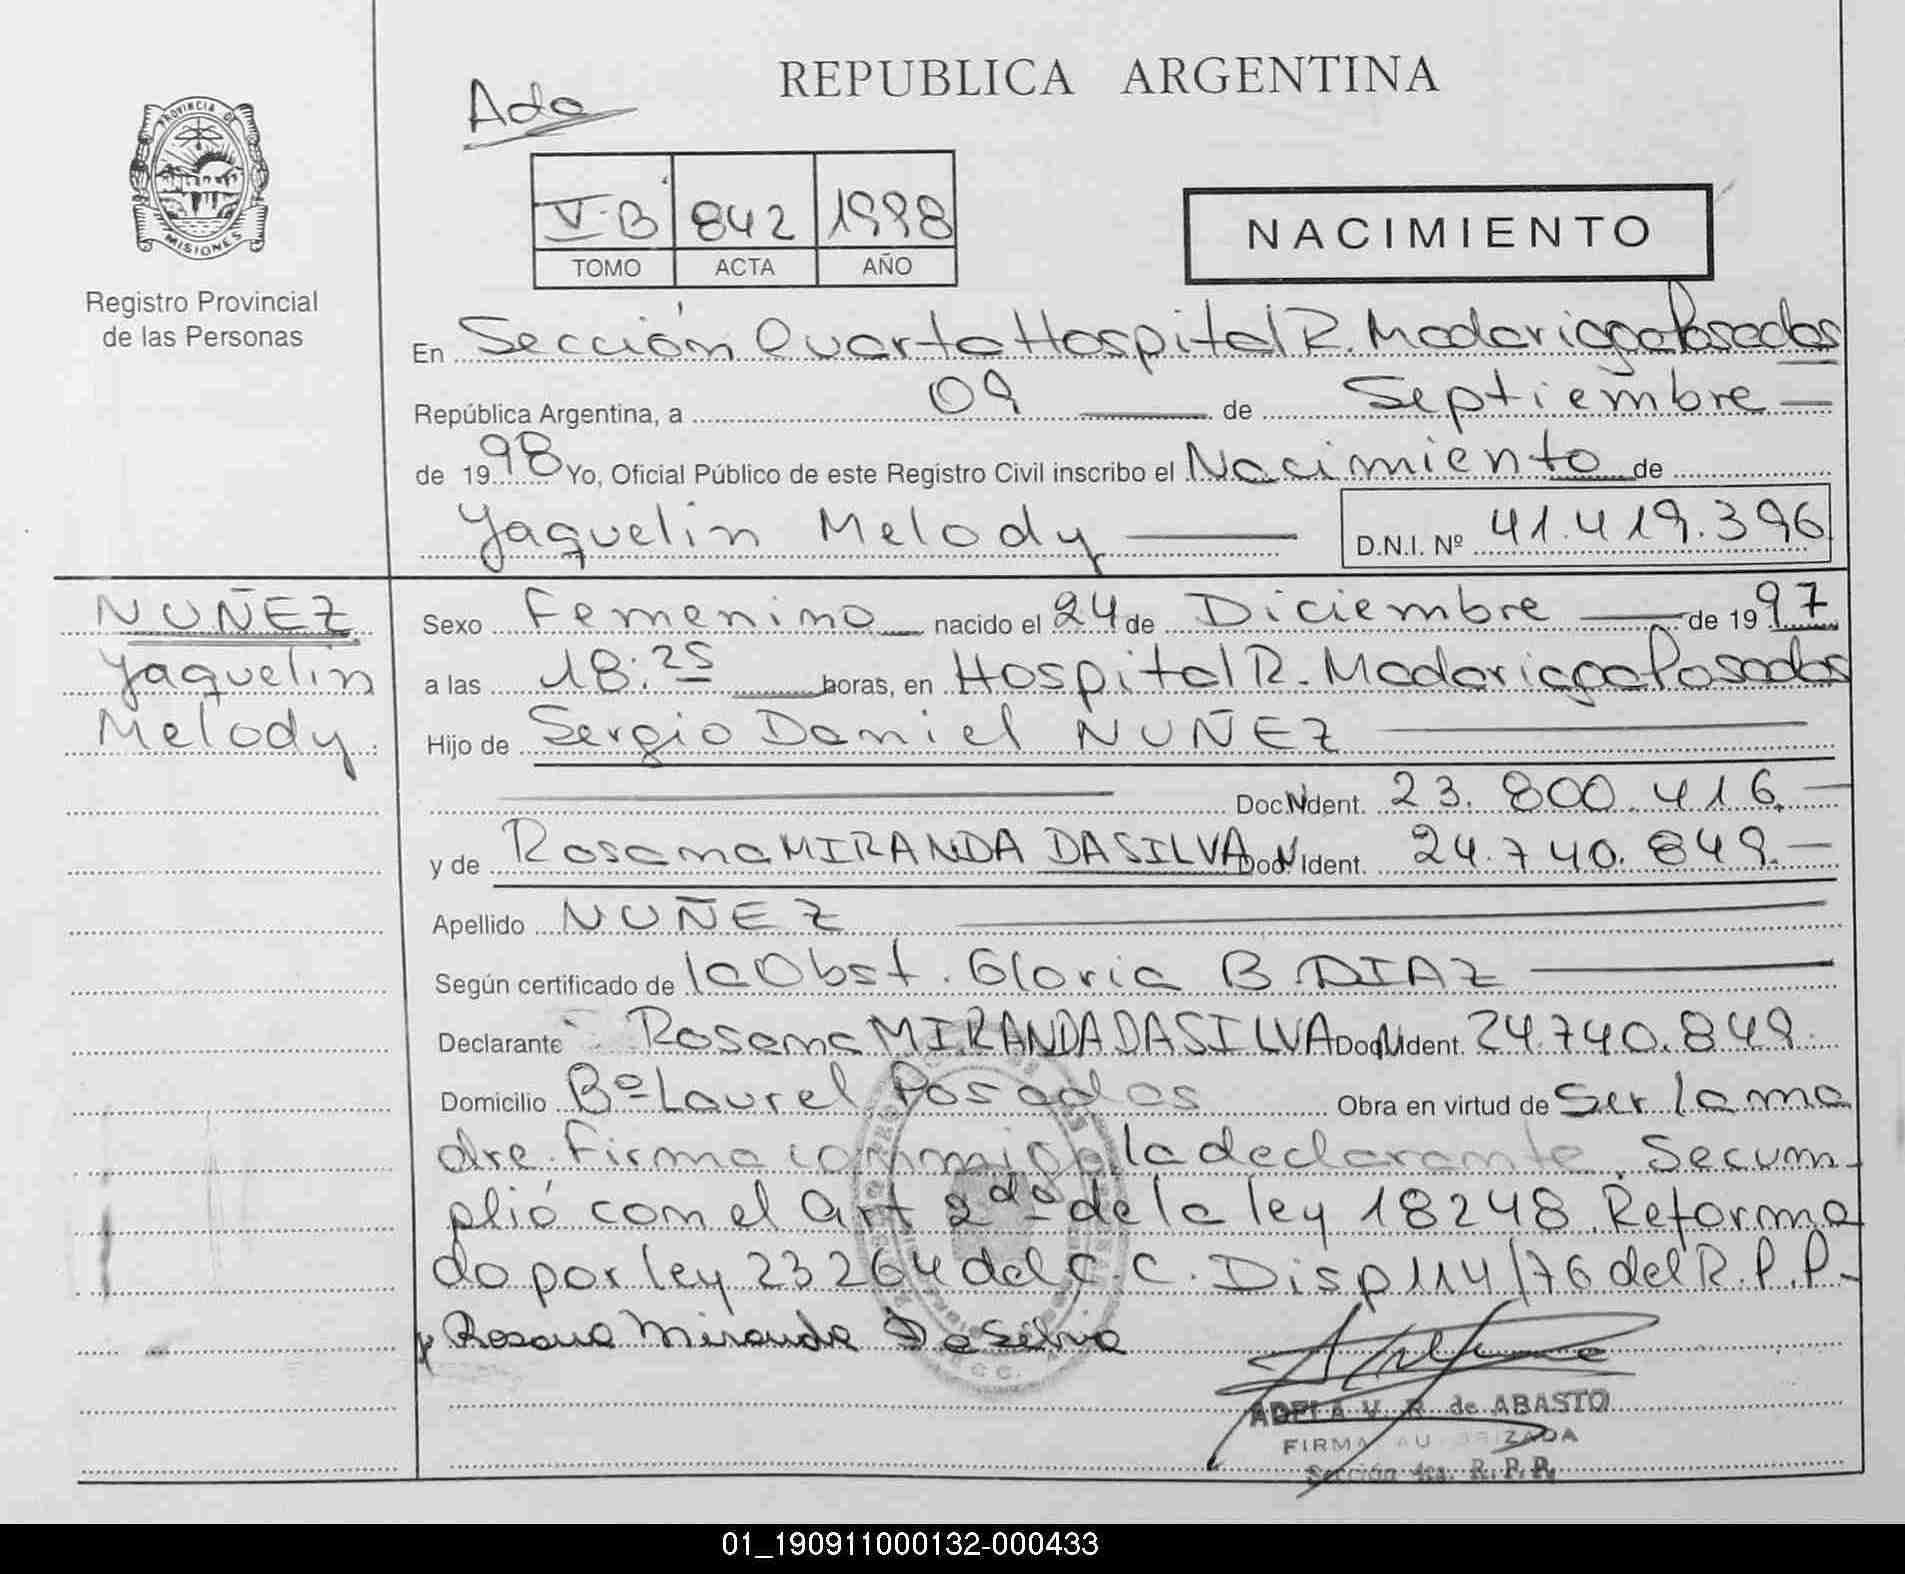 REPUBLICA ARGENTINA
Ada
PROVINCIA DE
MISIONES
Registro Provincial
de las Personas
V-B 842 1998
TOMO ACTA AÑO
NACIMIENTO
En Sección Cuarta Hospital R. Madariaga Posadas
República Argentina, a 09 de Septiembre
de 1998 Yo, Oficial Público de este Registro Civil inscribo el Nacimiento de
Yaquelin Melody D.N.I. Nº 41.419.396
NUÑEZ
Yaquelin
Melody
Sexo Femenino nacido el 24 de Diciembre de 1997
a las 18:25 horas, en Hospital R. Madariaga Posadas
Hijo de Sergio Daniel NUÑEZ
Doc. N Ident. 23.800.416
y de Rosana MIRANDA DA SILVA Doc. N Ident. 24.740.849.
Apellido NUÑEZ
Según certificado de la Obst. Gloria B. DIAZ
Declarante Rosana MIRANDA DA SILVA Doc. N Ident. 24.740.849.
Domicilio Bº Laurel Posadas Obra en virtud de Ser la ma
dre. Firma conmigo la declarante. Se cum-
plió con el Art 2da de la ley 18248 Reforma
do por ley 23264 del C.C. Disp 114/76 del R.P.P.-
Rosana Miranda Da Silva
ADELA V. R. de ABASTO
FIRMA AUTORIZADA
Sección 4ta. R.P.P.
01_190911000132-000433